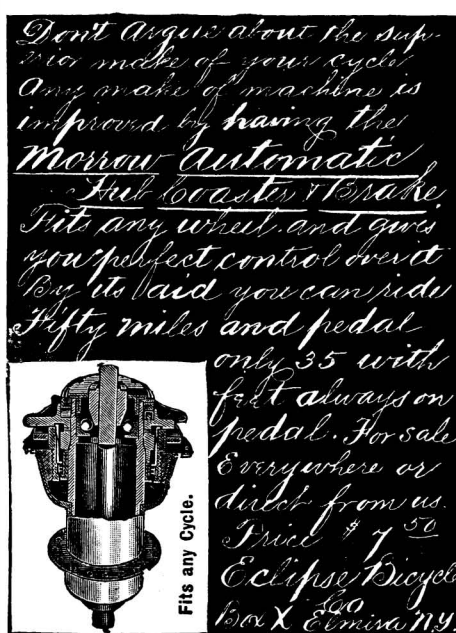 Don't Argue about the sup-
erior make of your cycle
Any make of machine is
improved by having the
Morrow Automatic
Hub Coaster & Brake
Fits any wheel and gives
you perfect control over it
By its aid you can ride
Fifty miles and pedal
only 35 with
feet always on
pedal. For sale
Everywhere or
direct from us.
Price $7 50
Eclipse Bicycle
Co
Box X Elmira N.Y.
Fits any Cycle.